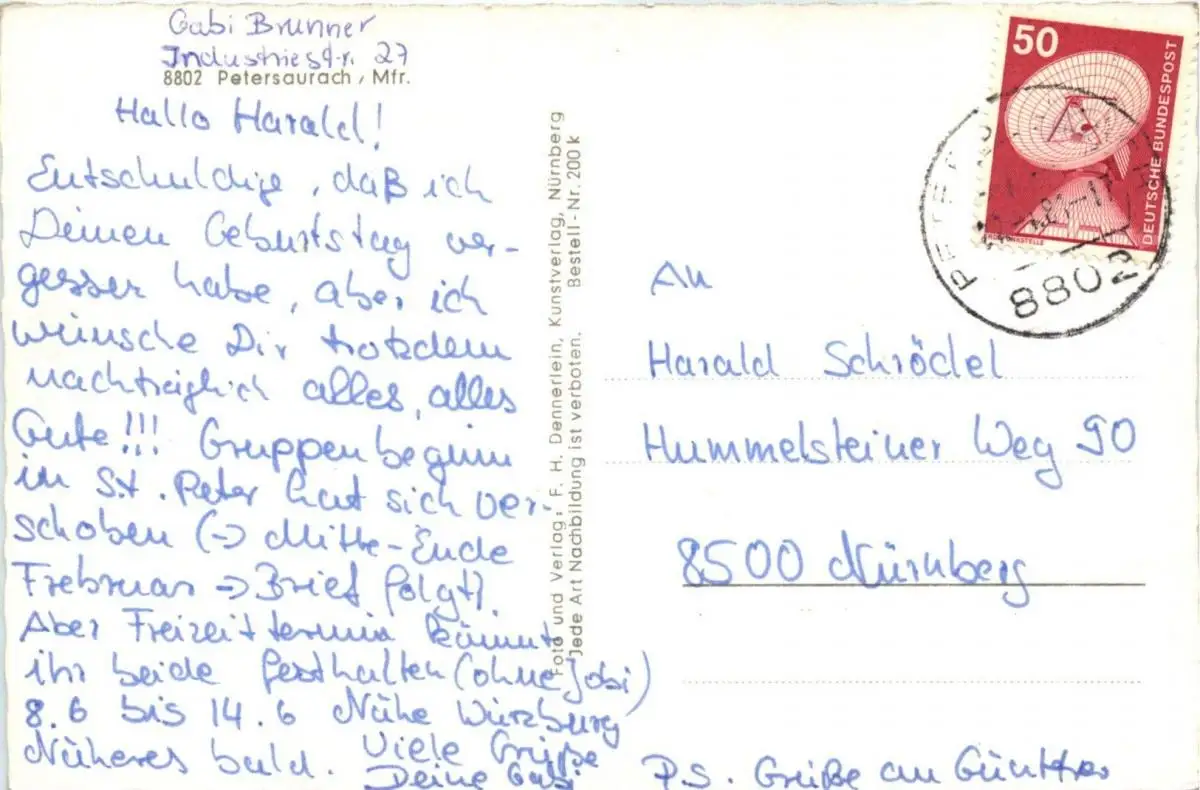 Gabi Brunner
Industriestr. 27
8802 Petersaurach / Mfr.
Hallo Harald!
Entschuldige, daß ich
Deinen Geburtstag ver-
gessen habe, aber ich
wünsche Dir trotzdem
nachträglich alles, alles
Gute!!! Gruppenbeginn
in St. Peter hat sich ver-
schoben (→ Mitte-Ende
Frebruar → Brief folgt).
Aber Freizeittermin könnt
ihr beide festhalten (ohne Jobi)
8.6 bis 14.6 Nähe Würzburg
Näheres bald. Viele Grüße
Deine Gabi
Foto und Verlag: F. H. Dennerlein, Kunstverlag, Nürnberg
Jede Art Nachbildung ist verboten. Bestell-Nr. 200 k
50
DEUTSCHE BUNDESPOST
8802
An
Harald Schrödel
Hummelsteiner Weg 90
8500 Nürnberg
P.S. Grüße an Günther